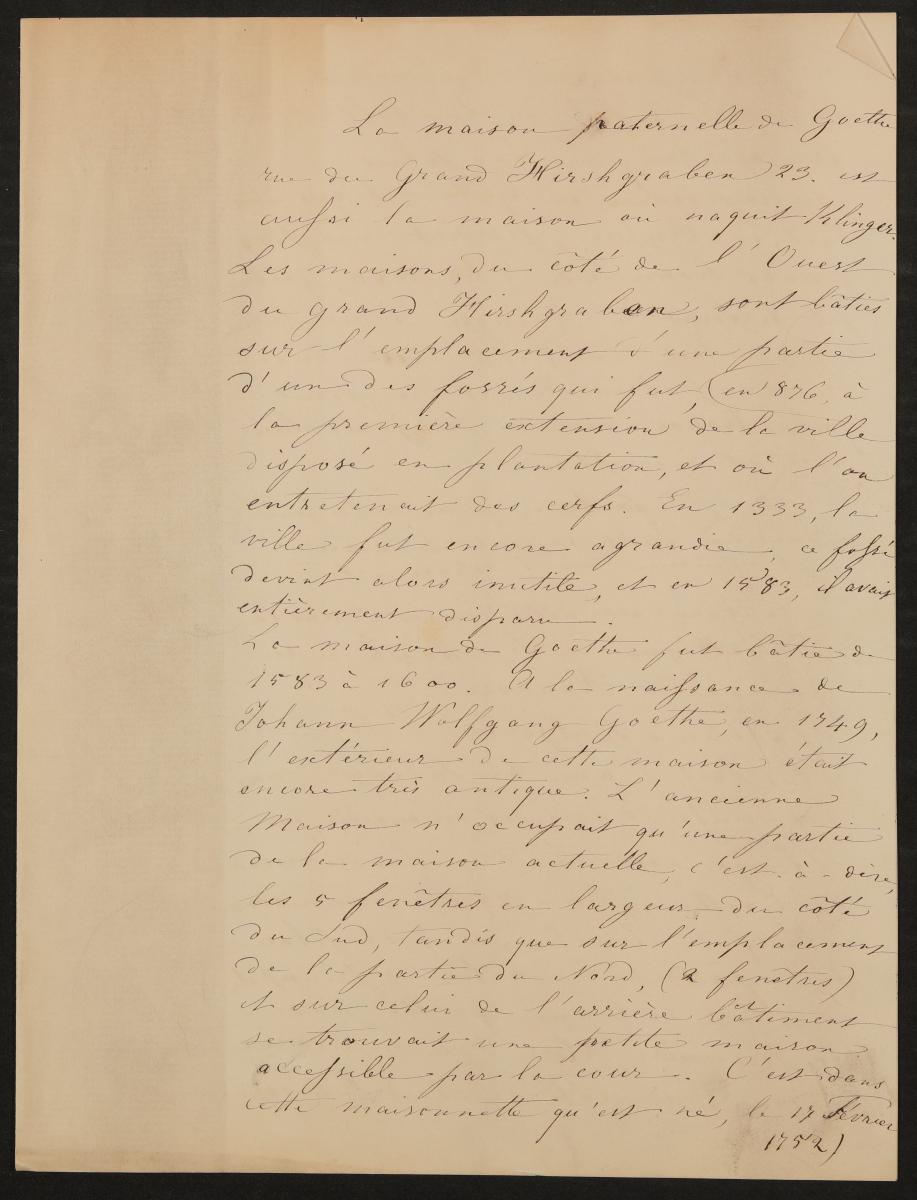 La maison paternelle de Goethe
rue du Grand Hirshgraben 23. est
aussi la maison où naquit Klinger.
Les maisons, du côté de l'Ouest
du grand Hirshgraben, sont bâties
sur l'emplacement d'une partie
d'un des fossés qui fut, (en 876, à
la première extension de la ville
disposé en plantation, et où l'on
entretenait des cerfs. En 1333, la
ville fut encore agrandie, ce fossé
devint alors inutile, et en 1583, il avait
entièrement disparu.
La maison de Goethe fut bâtie de
1583 à 1600. A la naissance de
Johann Wolfgang Goethe, en 1749,
l'extérieur de cette maison était
encore très antique. L'ancienne
Maison n'occupait qu'une partie
de la maison actuelle, c'est-à-dire,
les 5 fenêtres en largeur du côté
du Sud, tandis que sur l'emplacement
de la partie du Nord, (2 fenetres)
et sur celui de l'arrière bâtiment
se trouvait une petite maison
accessible par la cour. C'est dans
cette maisonnette qu'est né, le 17 Février
1752)